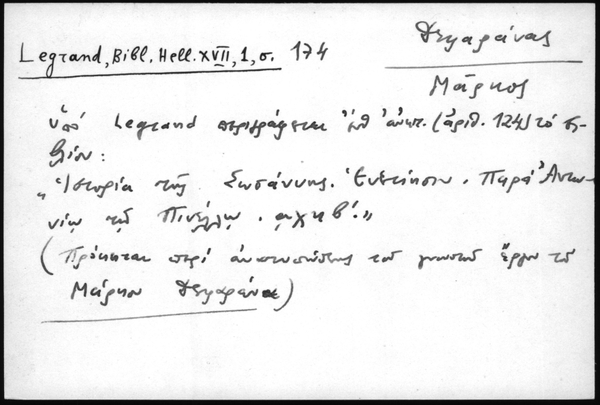 Legrand, Bibl. Hell. XVII, 1, σ. 174
Δεφαράνας
Μάρκος
ὑπὸ Legrand περιγράφεται (ἀριθ. 124) τὸ βι-
βλίον:
„Ἱστορία τῆς Σωσάννης. Ἐνετίησιν. Παρὰ Ἀντω-
νίῳ τῷ Πινέλλῳ. ͵αχκβʹ.”
(Πρόκειται περὶ ἀνατυπώσεως τοῦ γνωστοῦ ἔργου τοῦ
Μάρκου Δεφαράνα)